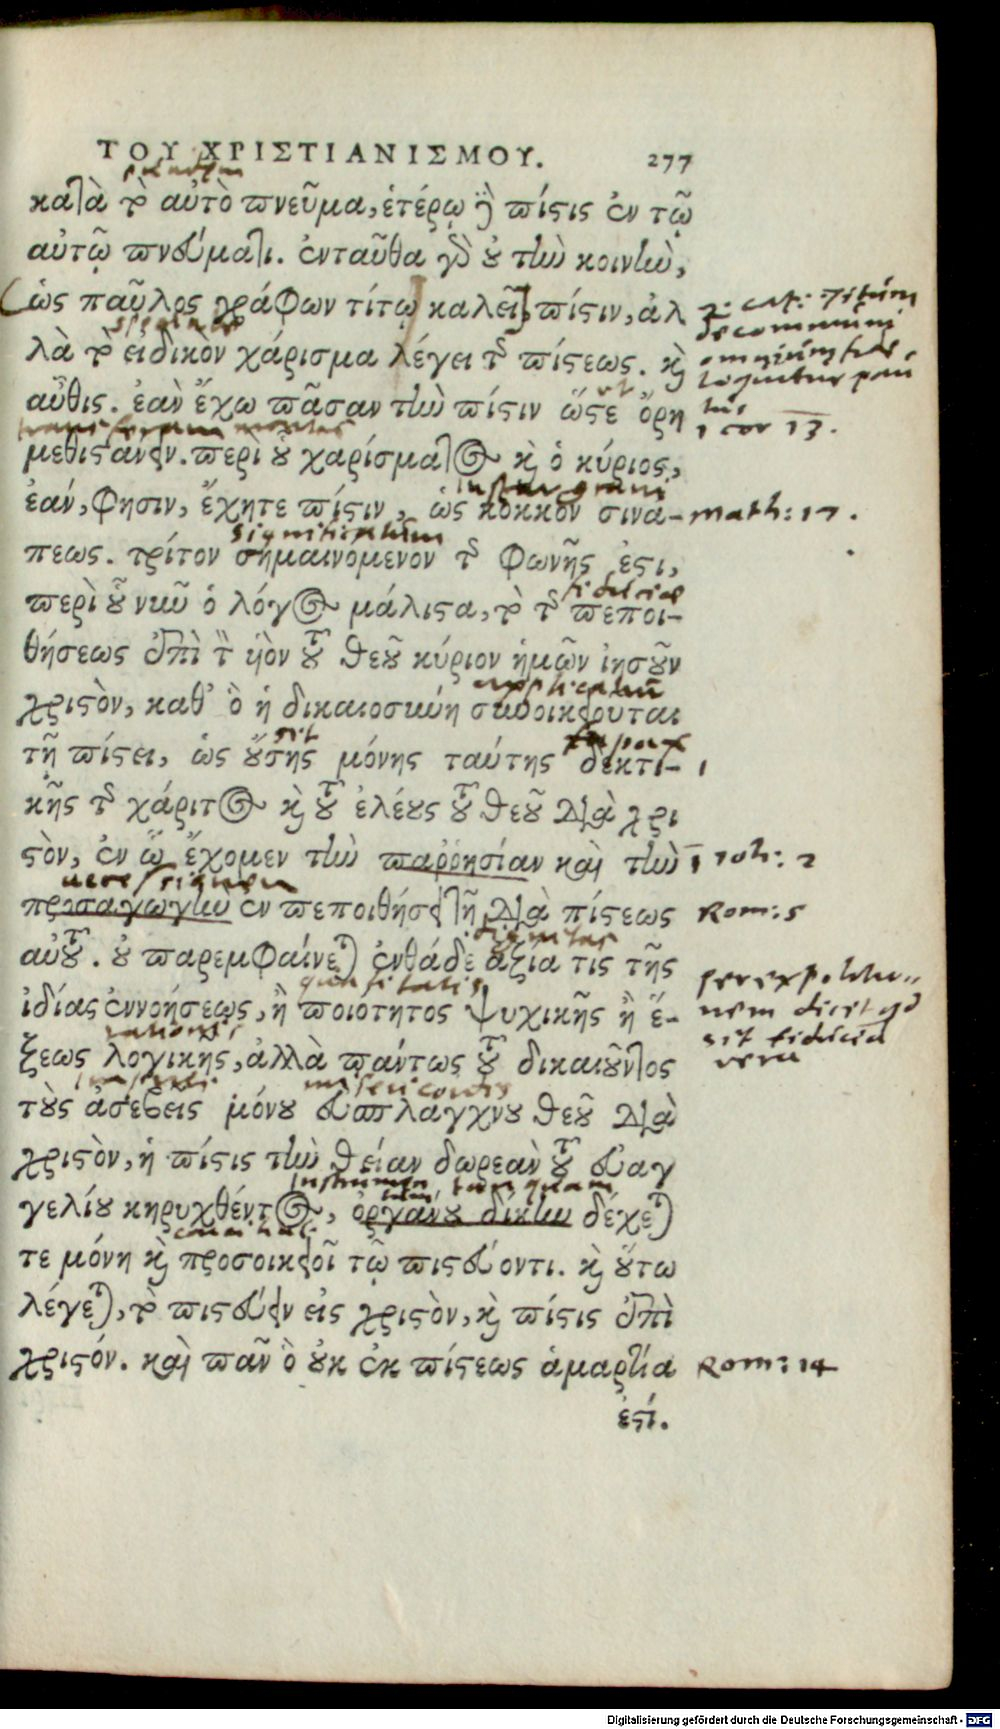 ΤΟΥ ΧΡΙΣΤΙΑΝΙΣΜΟΥ. 277
κατὰ τὸ αὐτὸ πνεῦμα, ἑτέρῳ δὲ πίστις ἐν τῷ
αὐτῷ πνεύματι. ἐνταῦθα γὰρ οὐ τὴν κοινὴν,
ὡς παῦλος γράφων τίτῳ καλεῖ πίστιν, ἀλ
λὰ τὸ εἰδικὸν χάρισμα λέγει τῆς πίστεως. καὶ
αὖθις. ἐὰν ἔχω πᾶσαν τὴν πίστιν ὥστε ὄρη
transferam montes
μεθιστάνειν. περὶ οὗ χαρίσματος καὶ ὁ κύριος,
ἐάν, φησιν, ἔχητε πίστιν, ὡς κόκκον σινά-
instar grani
math: 17.
significatum
πεως. τρίτον σημαινόμενον τῆς φωνῆς ἐστι,
περὶ οὗ νῦν ὁ λόγος μάλιστα, τὸ τῆς πεποι-
fiduciae
θήσεως ἐπὶ τὸν υἱὸν τοῦ θεοῦ κύριον ἡμῶν ἰησοῦν
χριστὸν, καθ' ὃ ἡ δικαιοσύνη συνοικειοῦται
τῇ πίστει, ὡς οὔσης μόνης ταύτης δεκτι-
sit
κῆς τῆς χάριτος καὶ τοῦ ἐλέους τοῦ θεοῦ διὰ χρι
στὸν, ἐν ᾧ ἔχομεν τὴν παῤῥησίαν καὶ τὴν
1 ioh: 2
προσαγωγὴν ἐν πεποιθήσει τῇ διὰ πίστεως
Rom: 5
αὐτοῦ. οὐ παρεμφαίνεται ἐνθάδε ἀξία τις τῆς
dignitas
ἰδίας ἐννοήσεως, ἢ ποιότητος ψυχικῆς ἢ ἕ-
qualitatis
ξεως λογικῆς, ἀλλὰ πάντως τοῦ δικαιοῦντος
τοὺς ἀσεβεῖς μόνου εὐσπλάγχνου θεοῦ διὰ
misericordis
χριστὸν, ἡ πίστις τὴν θείαν δωρεὰν τοῦ εὐαγ
γελίου κηρυχθέντος, ὀργάνου δίκην δέχεται
tanquam
τε μόνη καὶ προσοικειοῖ τῷ πιστεύοντι. καὶ οὕτω
λέγεται, τὸ πιστεύειν εἰς χριστὸν, καὶ πίστις ἐπὶ
χριστόν. καὶ πᾶν ὃ οὐκ ἐκ πίστεως ἁμαρτία
Rom: 14
ἐστί.
1 cor 13.
Digitalisierung gefördert durch die Deutsche Forschungsgemeinschaft - DFG